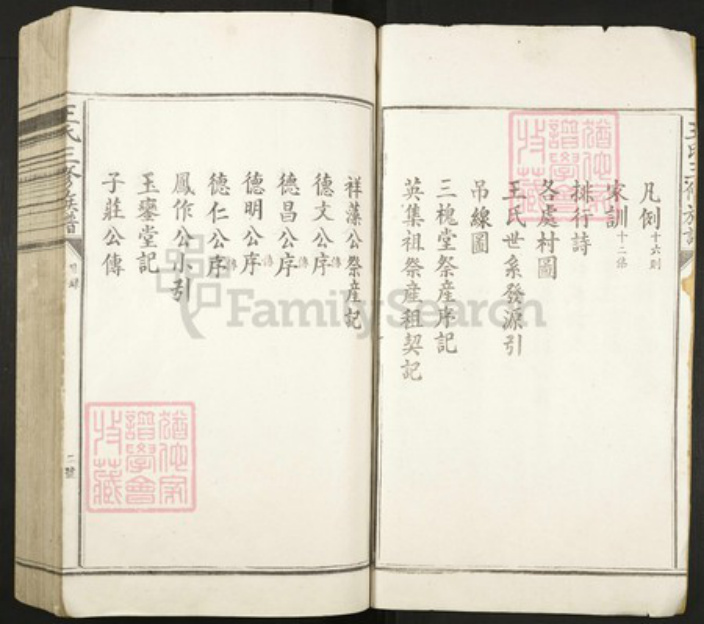 凡例十六則
家訓十二條
排行詩
各處村圖
王氏世系發源引
吊線圖
三槐堂祭產序記
英集祖祭產租契記
祥藻公祭產記
德文公序傳
德昌公序
德明公序傳
德仁公序傳
鳳作公小引
玉鑾堂記
子莊公傳
王氏三修族譜
二號
譜學會
特藏
FamilySearch